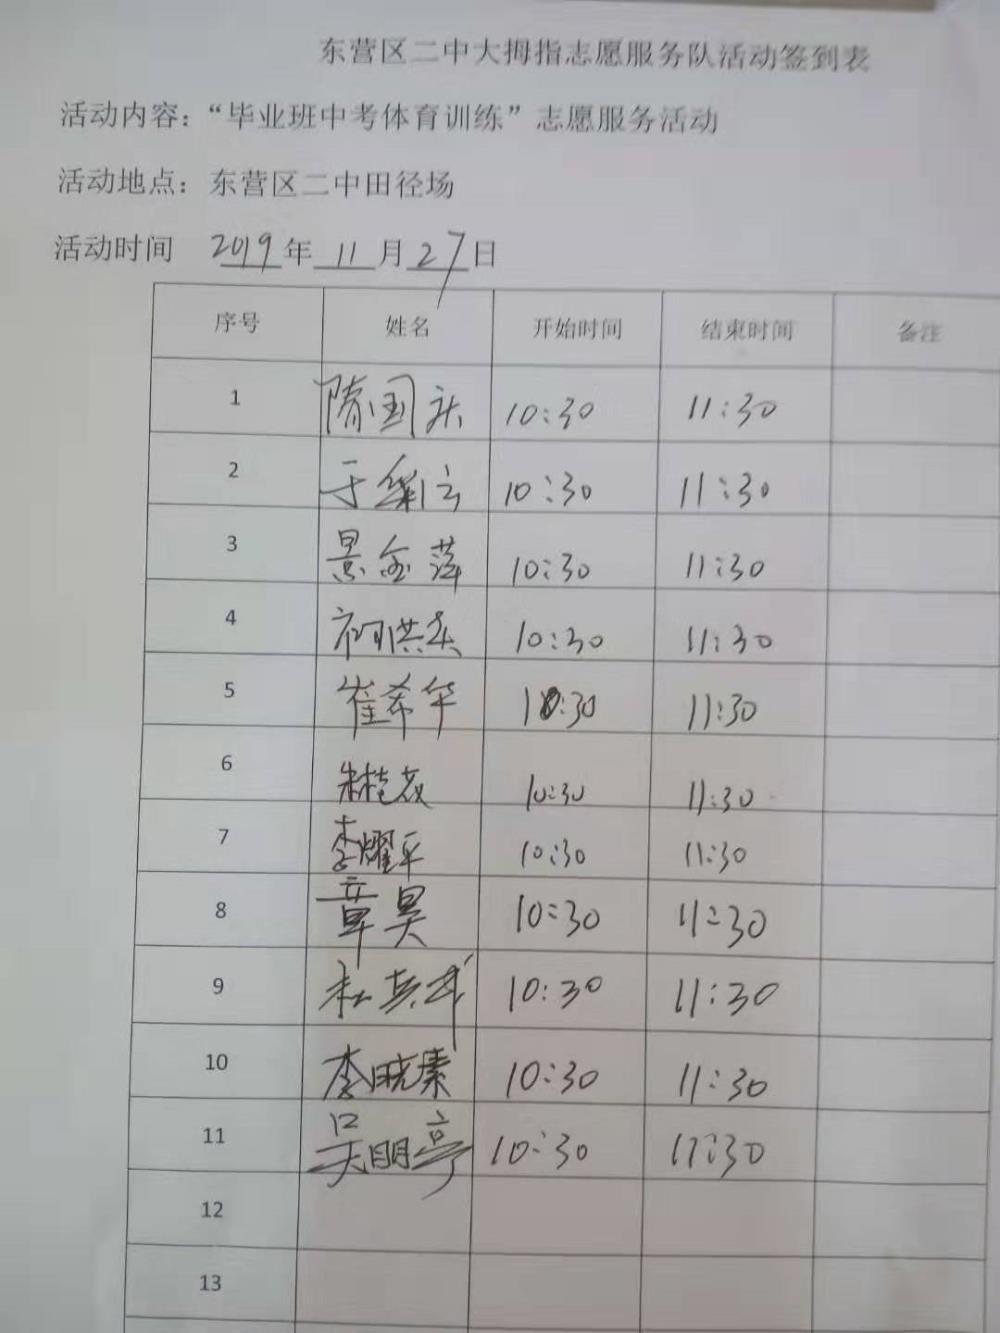 东营区二中大拇指志愿服务队活动签到表
活动内容：“毕业班中考体育训练”志愿服务活动
活动地点：东营区二中田径场
活动时间 2019年11月27日
序号 姓名 开始时间 结束时间 备注
1 隋国庆 10:30 11:30
2 于 10:30 11:30
3 景金萍 10:30 11:30
4 10:30 11:30
5 崔希华 10:30 11:30
6 朱桂 10:30 11:30
7 李耀平 10:30 11:30
8 章昊 10:30 11:30
9 10:30 11:30
10 李晓素 10:30 11:30
11 吴明亭 10:30 11:30
12
13